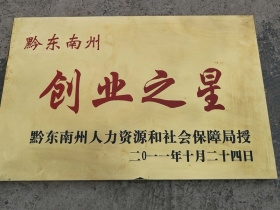 黔东南州
创业之星
黔东南州人力资源和社会保障局授
二0一一年十月二十四日